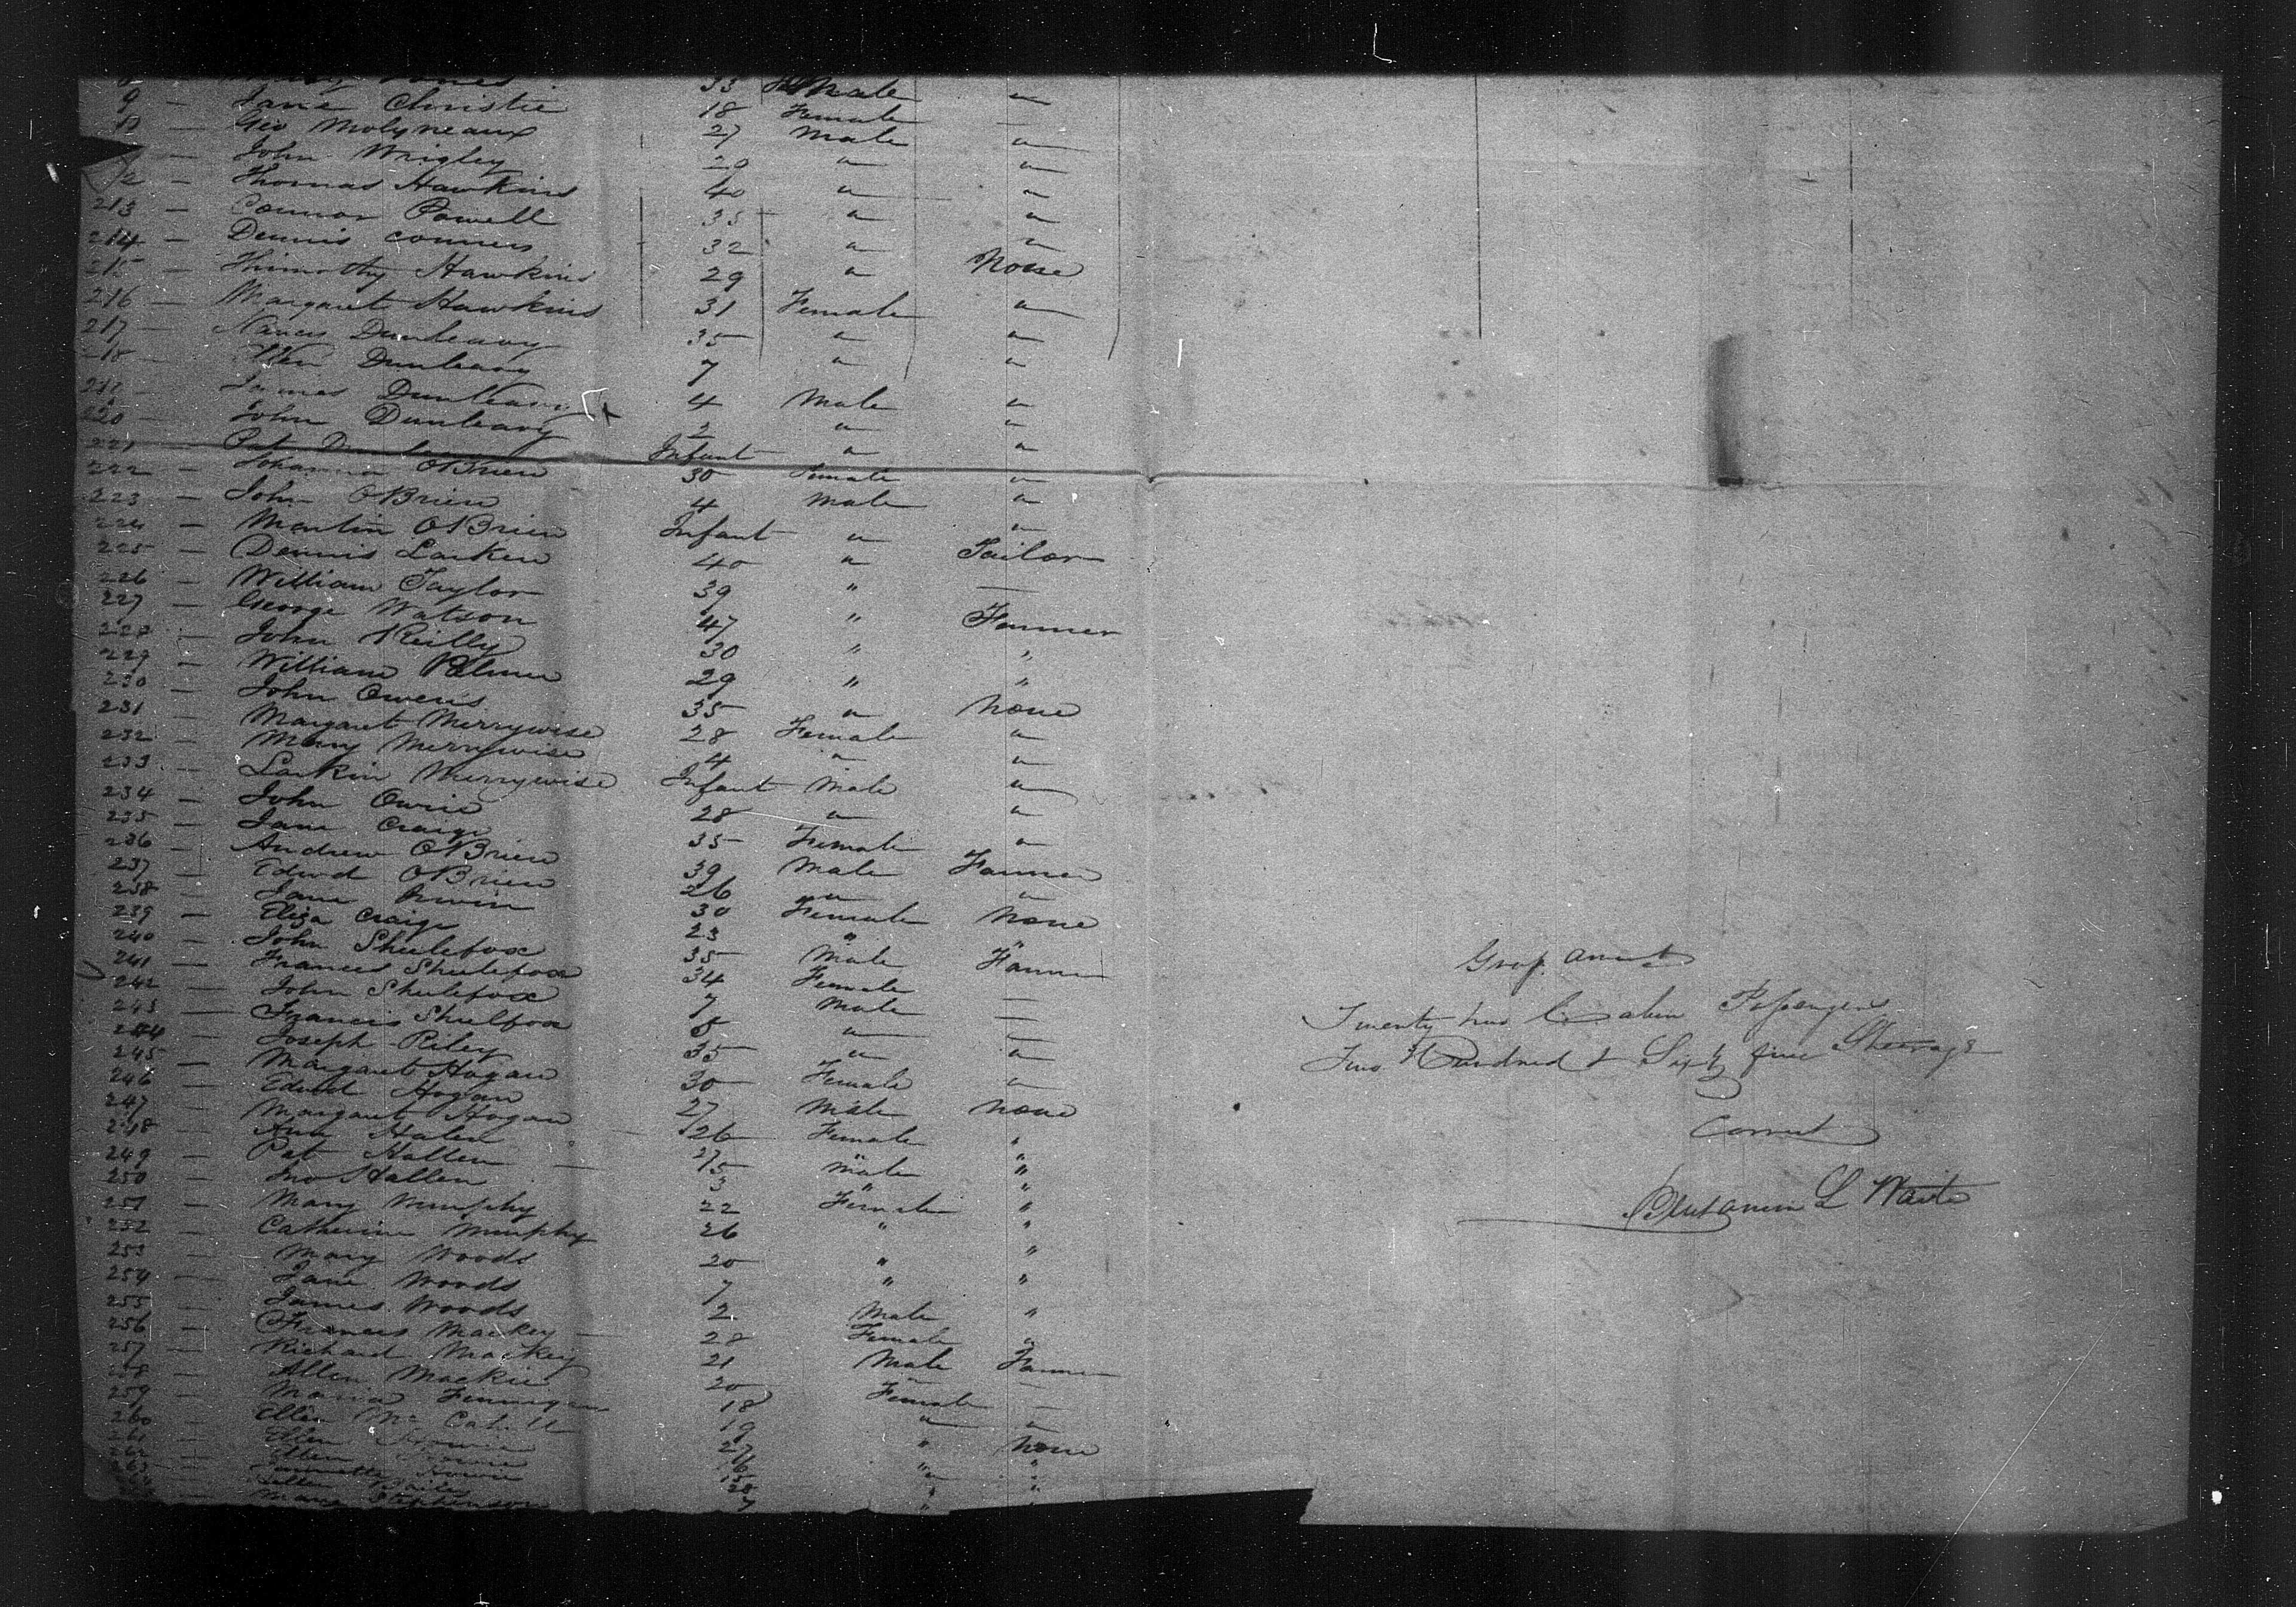 33 Male "
9 — Jane Christie 18 Female —
Geo Molyneaux 27 Male "
— John Wrigley 29 " "
12 — Thomas Hawkins 40 " "
213 — Connor Powell 35 " "
214 — Dennis Conners 32 " "
215 — Thimothy Hawkins 29 " None
216 — Margaret Hawkins 31 Female "
217 — Nancy Dunleavy 35 " "
218 — Ellen Dunleavy 7 " "
219 — James Dunleavy 4 Male "
220 — John Dunleavy 2 " "
221 — Pat Infant " "
222 — Johanna OBrien 30 Female "
223 — John OBrien 4 Male "
224 — Martin OBrien Infant " "
225 — Dennis Larken 40 " Tailor
226 — William Taylor 39 " —
227 — George Watson 47 " Farmer
228 — John Reilly 30 " "
229 — William 29 " "
230 — John Owens 35 " None
231 Margaret Merrywise 28 Female "
232 — Mary Merrywise 4 " "
233 — Larkin Merrywise Infant Male "
234 — John Owrie 28 " "
235 — Jane Craige 35 Female "
236 — Andrew OBrien 39 Male Farmer
237 — Edwd OBrien 26 " "
238 — Jane Irwin 30 Female None
239 — Eliza Craige 23 " "
240 — John Shulefox 35 Male Farmer
241 — Frances Shulefox 34 Female
242 — John Shulefox 7 Male —
243 — Francis Shulfox 5 " —
244 — Joseph Riley 35 " "
245 — Margaret Hogan 30 Female "
246 — Edwd Hogan 27 Male None
247 — Margaret Hogan 26 Female "
248 — Ann 27 "
249 — Pat Hallen — 5 Male "
250 — Jno Hallen 3 " "
251 — Mary Murphy 22 Female "
252 — Catherine Murphy 26 " "
253 — Mary Woods 20 " "
254 — Jane Woods 7 " "
255 — James Woods 2 Male "
256 — Frances Mackey — 28 Female "
257 — Richard Mackey 21 Male Farmer
258 — Allen Mackie 20 " —
259 — Maria Finnigan 18 Female —
260 — Ellen Mc Cahill 19 " "
261 — Ellen 27 " None
Ellen
Mary Stephenson 7 "
Twenty two Cabin Passengers
Two Hundred & Sixty five Steerage
Correct
Benjamin L Waite